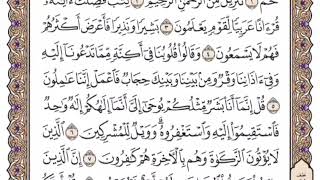 حمٓ ١ تَنزِيلٌ مِّنَ ٱلرَّحْمَٰنِ ٱلرَّحِيمِ ٢ كِتَٰبٌ فُصِّلَتْ ءَايَٰتُهُۥ
قُرْءَانًا عَرَبِيًّا لِّقَوْمٍ يَعْلَمُونَ ٣ بَشِيرًا وَنَذِيرًا فَأَعْرَضَ أَكْثَرُهُمْ
فَهُمْ لَا يَسْمَعُونَ ٤ وَقَالُوا۟ قُلُوبُنَا فِىٓ أَكِنَّةٍ مِّمَّا تَدْعُونَآ إِلَيْهِ
وَفِىٓ ءَاذَانِنَا وَقْرٌ وَمِنۢ بَيْنِنَا وَبَيْنِكَ حِجَابٌ فَٱعْمَلْ إِنَّنَا عَٰمِلُونَ
٥ قُلْ إِنَّمَآ أَنَا۠ بَشَرٌ مِّثْلُكُمْ يُوحَىٰٓ إِلَىَّ أَنَّمَآ إِلَٰهُكُمْ إِلَٰهٌ وَٰحِدٌ
فَٱسْتَقِيمُوٓا۟ إِلَيْهِ وَٱسْتَغْفِرُوهُ وَوَيْلٌ لِّلْمُشْرِكِينَ ٦ ٱلَّذِينَ
لَا يُؤْتُونَ ٱلزَّكَوٰةَ وَهُم بِٱلْءَاخِرَةِ هُمْ كَٰفِرُونَ ٧ إِنَّ ٱلَّذِينَ